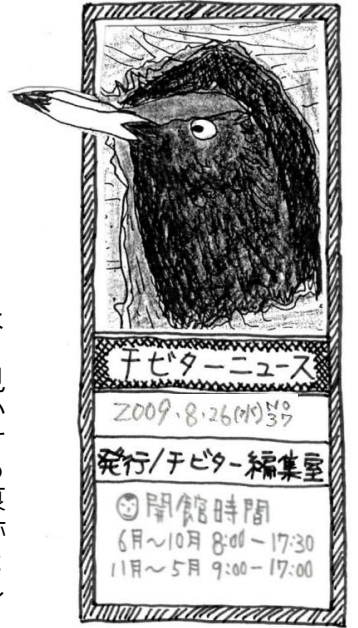 チビターニュース
2009.8.26(水)NO37
発行/チビター編集室
開館時間
6月～10月 8:00－17:30
11月～5月 9:00－17:00